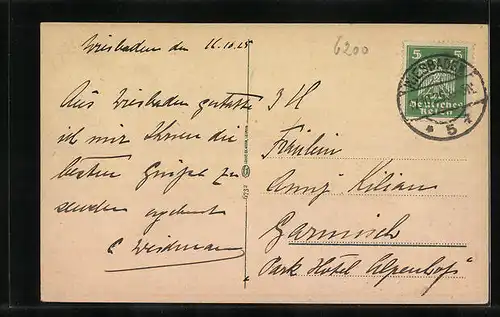 Wiesbaden den 16.10.25
6200
Aus Wiesbaden gestatte
ich mir Ihnen die
besten Grüße zu
senden
I H
Fräulein
Anny Kilian
Garmisch
Park Hotel "Alpenhof"
5 5
Deutsches
Reich
WIESBADEN
* 5 1